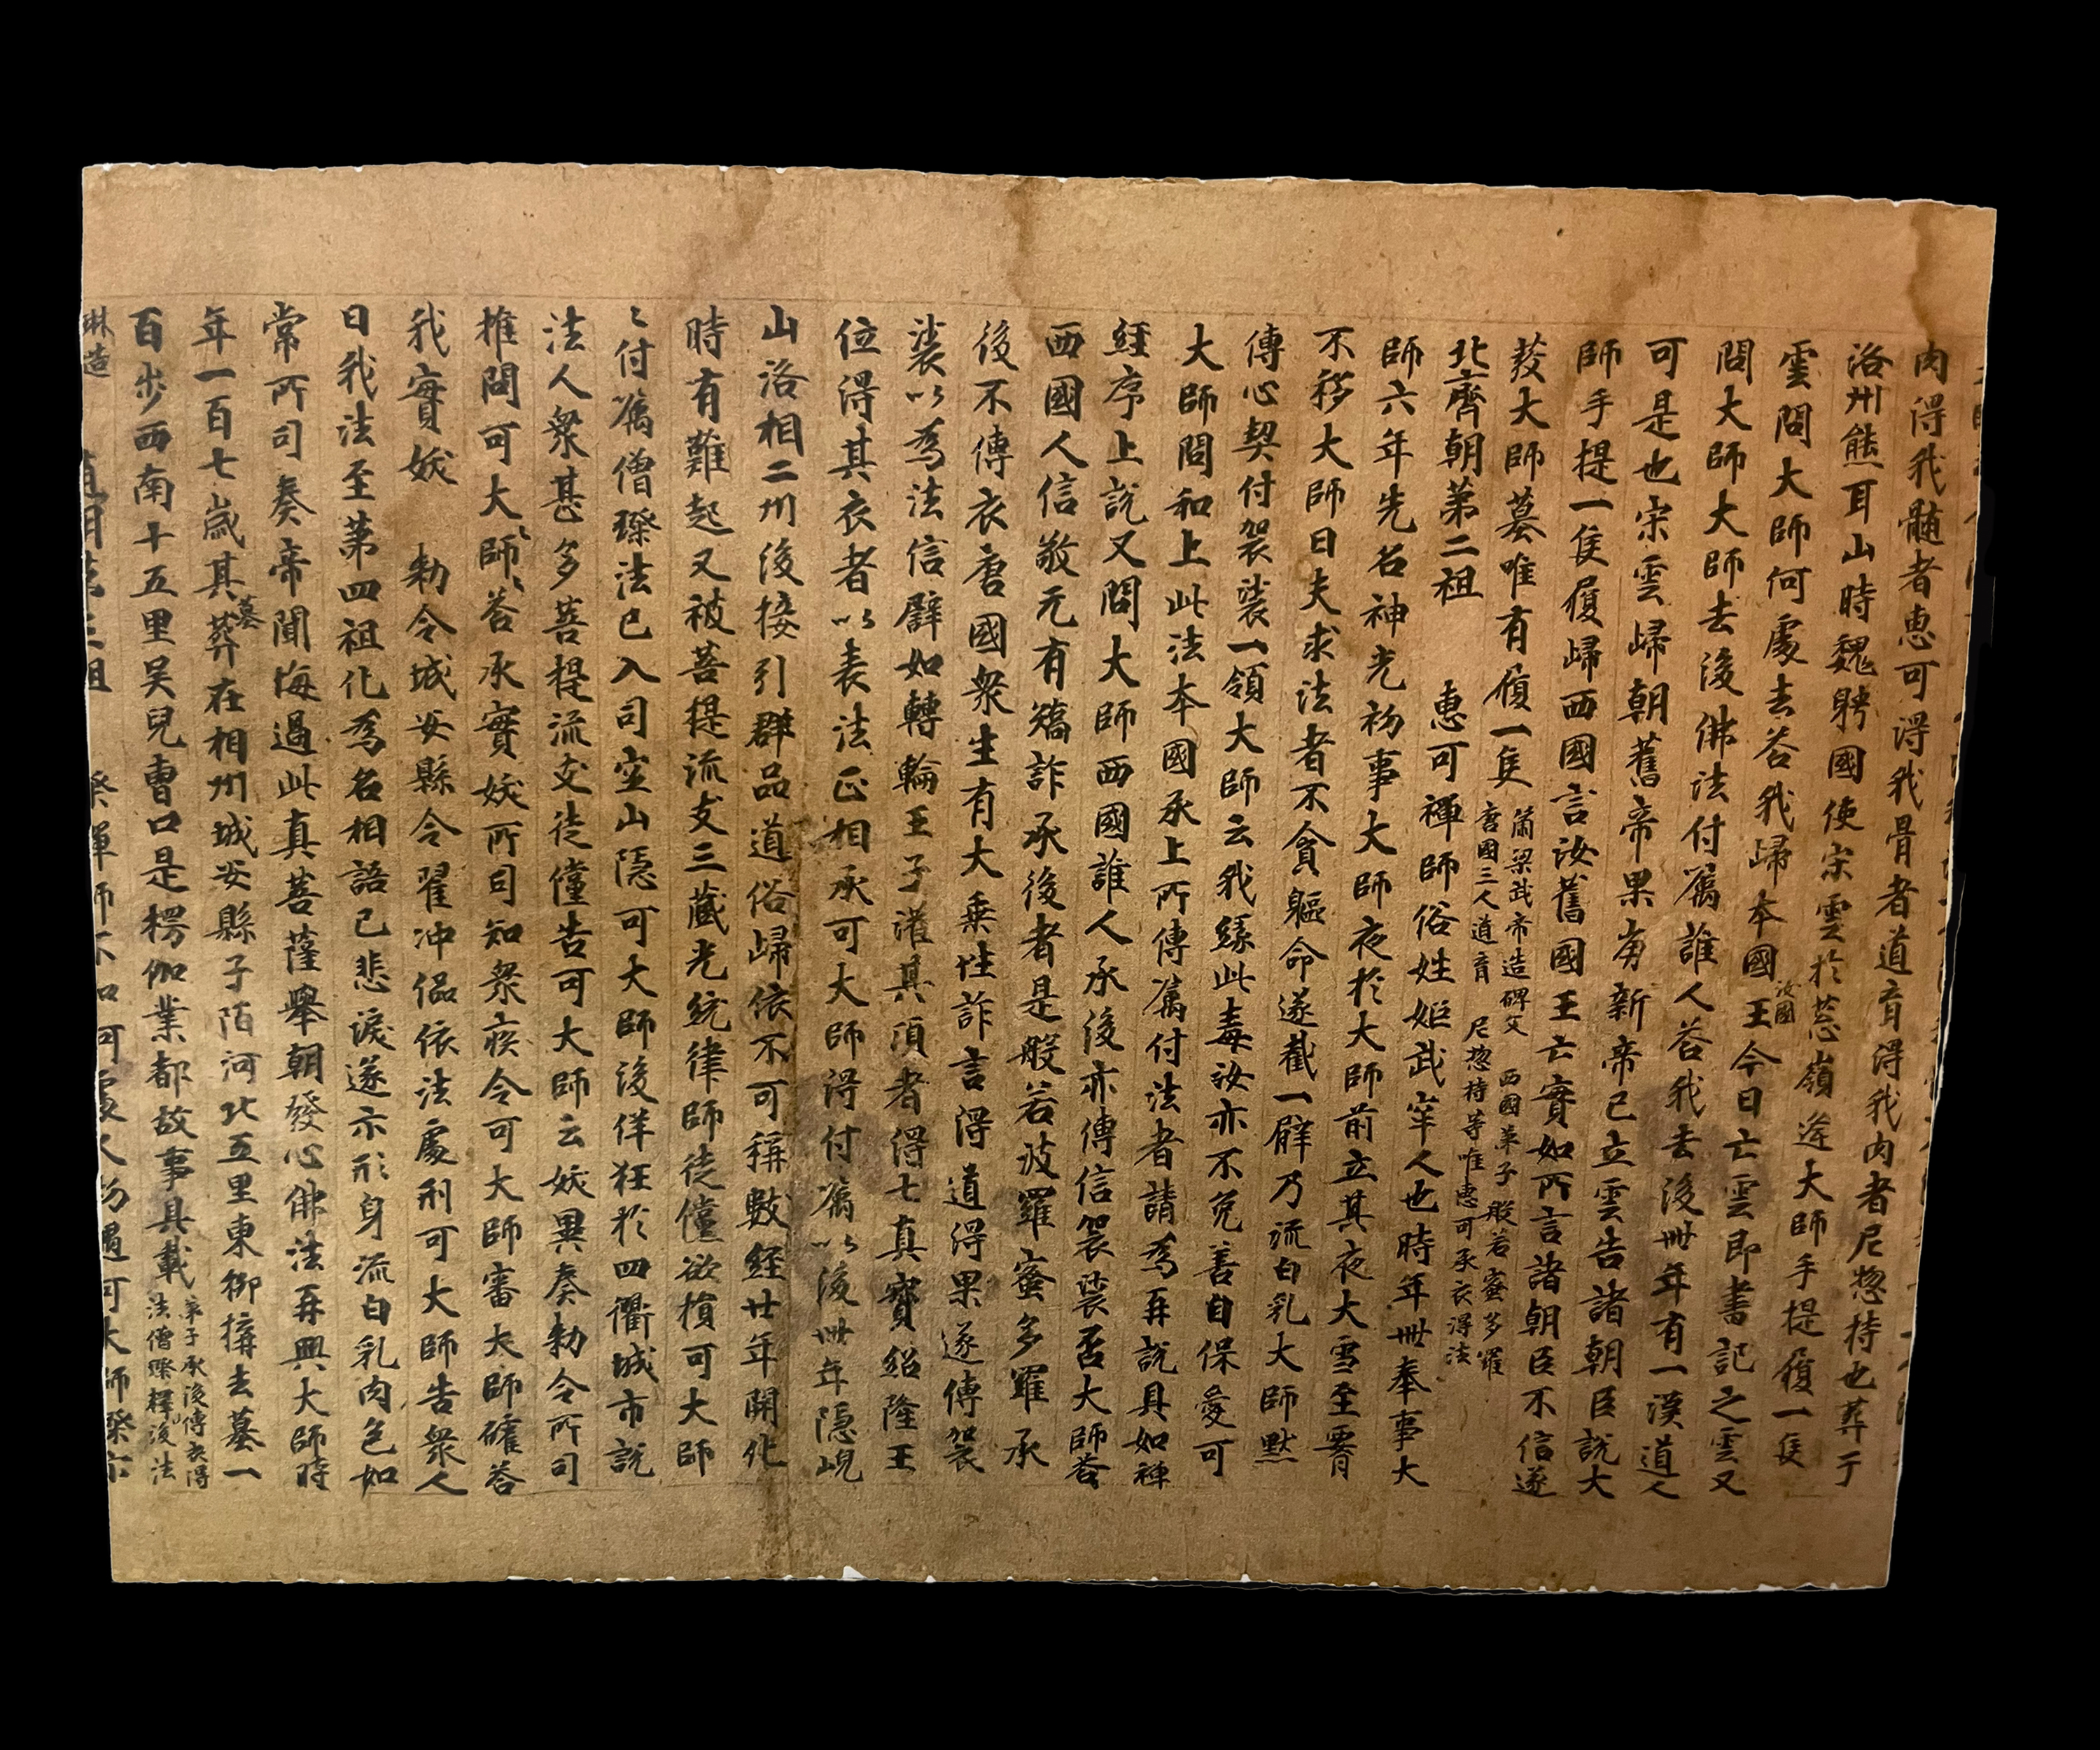 肉得我髓者惠可得我骨者道育得我肉者尼惣持也葬于
洛州熊耳山時魏聘國使宋雲於葱嶺逢大師手提履一隻
雲問大師何處去答我歸本國汝國王今日亡雲即書記之雲又
問大師大師去後佛法付囑誰人答我去後卌年有一漢道人
可是也宋雲歸朝舊帝果崩新帝已立雲告諸朝臣說大
師手提一隻履歸西國言汝舊國王亡實如所言諸朝臣不信遂
發大師墓唯有履一隻
蕭梁武帝造碑文 西國弟子般若蜜多羅
唐國三人道育 尼惣持等唯惠可承衣得法
北齊朝第二祖 惠可禪師俗姓姬武牢人也時年卌奉事大
師六年先名神光初事大師夜於大師前立其夜大雪至腰
不移大師曰夫求法者不貪軀命遂截一臂乃流白乳大師默
傳心契付袈裟一領大師云我緣此毒汝亦不免善自保愛可
大師問和上此法本國承上所傳囑付法者請為再說具如禪
經序上說又問大師西國誰人承後亦傳信袈裟否大師答
西國人信敬无有矯詐承後者是般若波羅蜜多羅承
後不傳衣唐國衆生有大乘性詐言得道得果遂傳袈
裟以為法信譬如轉輪王子灌其頂者得七真寶紹隆王
位得其衣者以表法正相承可大師得付囑以後卌年隱峴
山洛相二州後接引群品道俗歸依不可稱數經廿年開化
時有難起又被菩提流支三藏光統律師徒儻欲損可大師
〻付囑僧璨法已入司空山隱可大師後佯狂於四衢城市說
法人衆甚多菩提流支徒儻告可大師云妖異奏勑令所司
推問可大〻師〻答承實妖所司知衆疾令可大師審大師確答
我實妖 勑令城安縣令翟冲偘依法處刑可大師告衆人
曰我法至第四祖化為名相語已悲淚遂示形身流白乳肉色如
常所司奏帝聞悔過此真菩薩舉朝發心佛法再興大師時
年一百七歲其墓葬在相州城安縣子陌河北五里東柳搆去墓一
百步西南十五里吴兒曹口是楞伽業都故事具載
弟子承後傳衣得
法僧璨釋後法
琳造 三祖 璨禪師不知何處人初遇可大師璨示